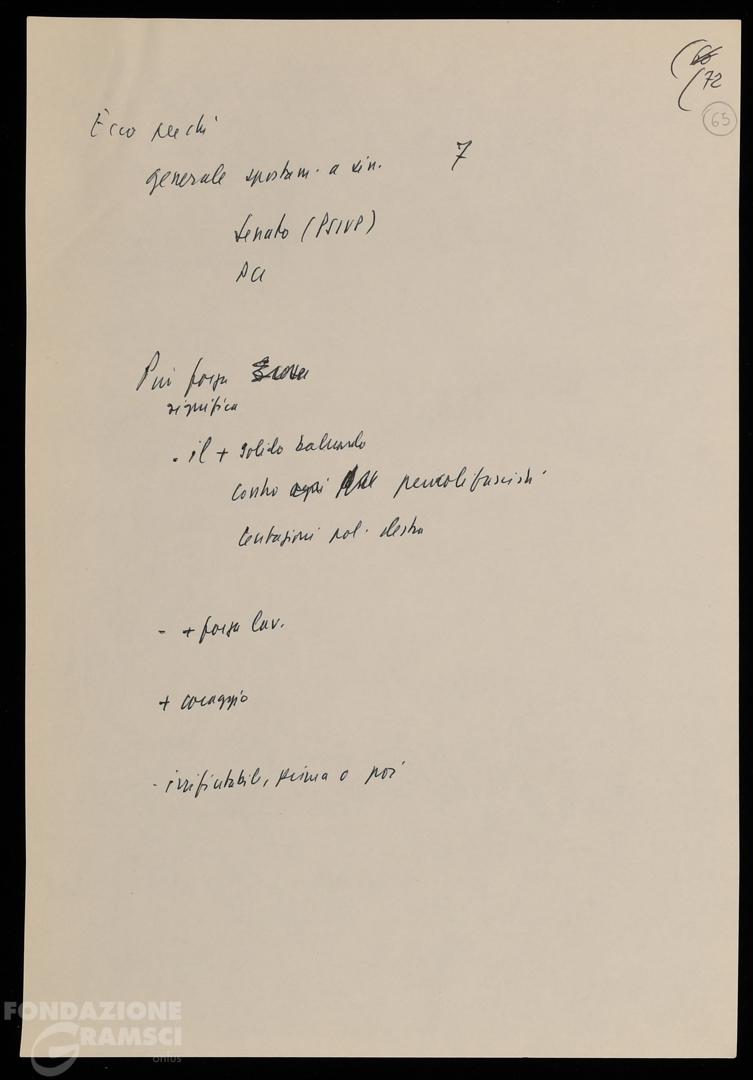 (66
(72
65
Ecco perché
generale spostam. a sin. 7
Senato (PSIUP)
PCI
Più forza
significa
- il + solido baluardo
contro ogni pericoli fascisti
tentazioni pol. destra
- + forza lav.
+ coraggio
- irrifiutabile, prima o poi
FONDAZIONE
GRAMSCI
onlus